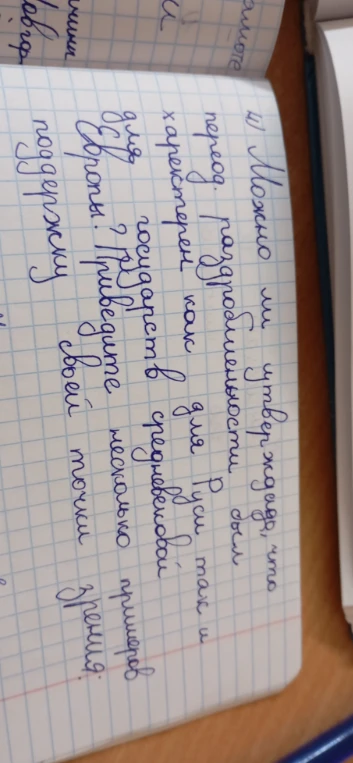 амоте
и
4) Можно ли утверждадо, что
переод раздробленности был
характерен как для Руси так и
для государств средневековой
Европы? Приведите несколько примеров
поддержку своей точки зрения.